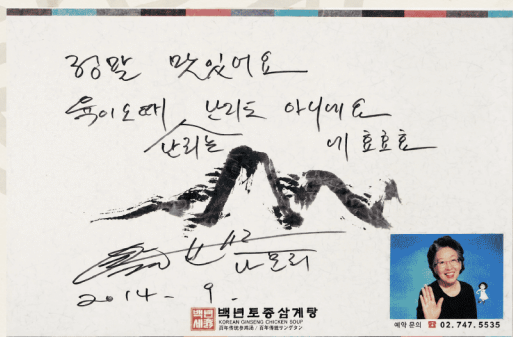 정말 맛있어요
육이오때 난리도 아니에요
난리는 네 호호호
나모리
2014 - 9.
백년토종삼계탕
KOREAN GINSENG CHICKEN SOUP
百年传统参鸡汤 / 百年伝統サンゲタン
예약 문의 ☎ 02. 747. 5535